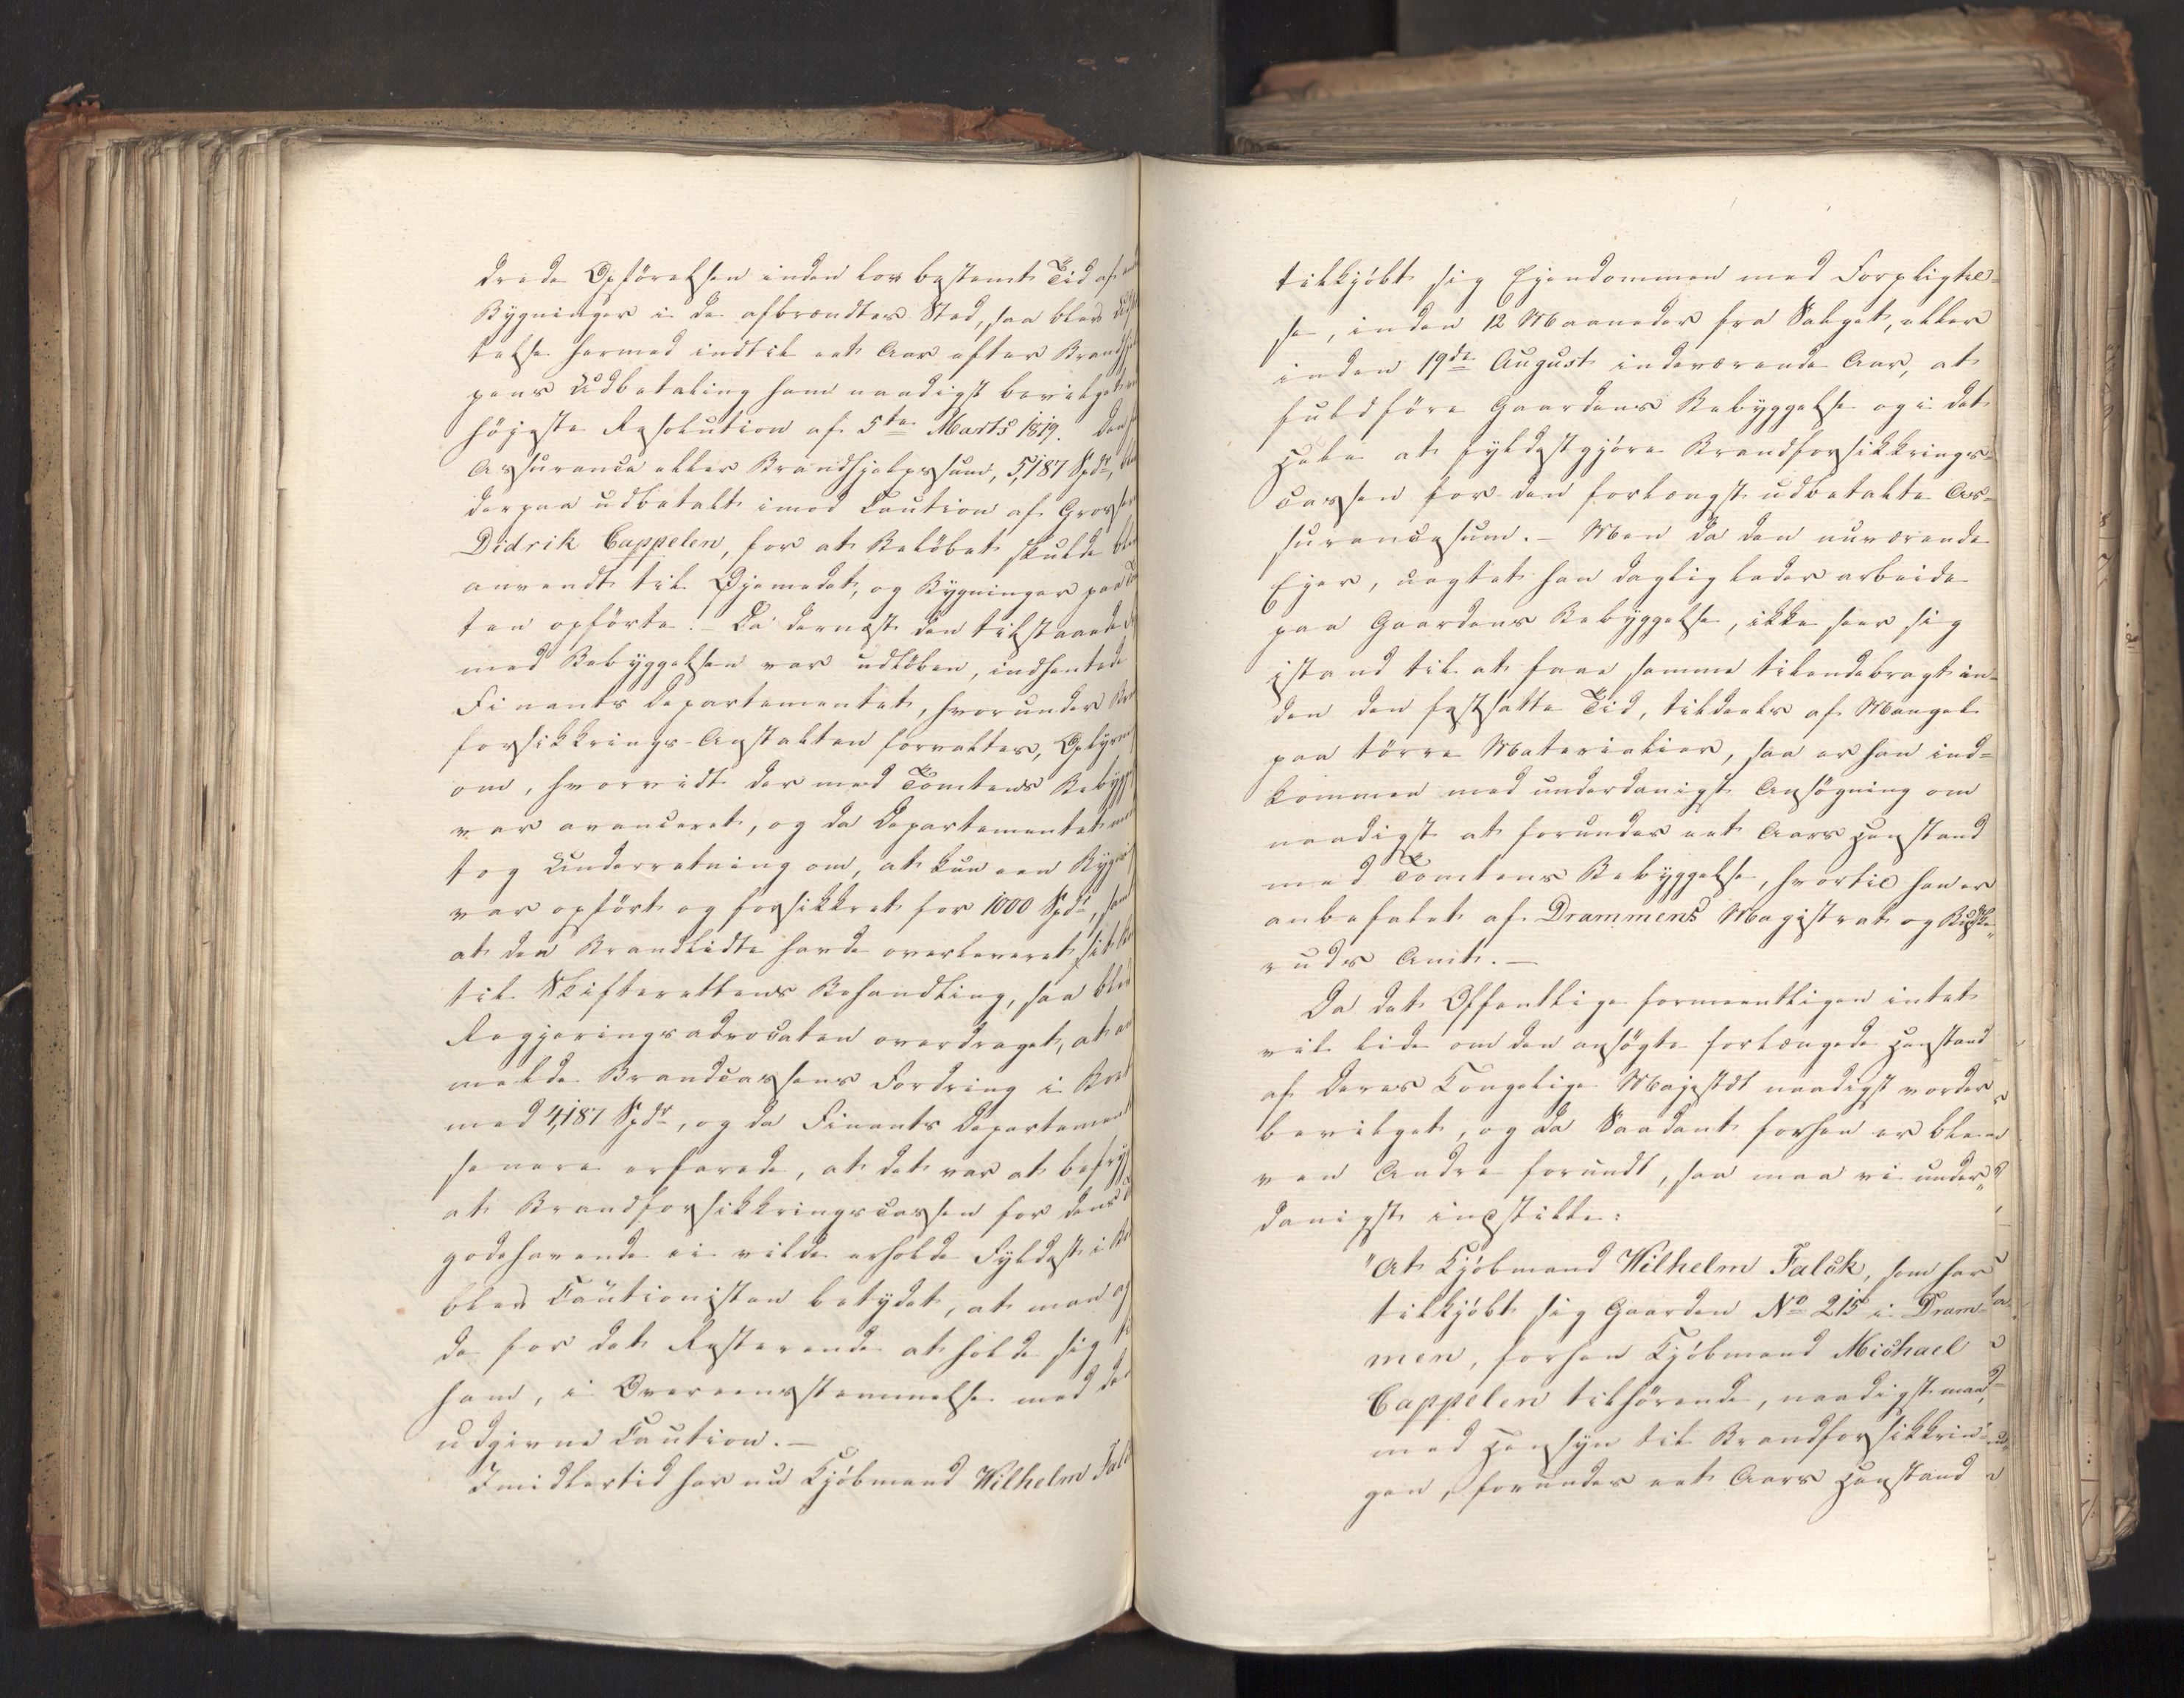 drede Opförelsen inden lov bestemt Tid af
Bygninger i de afbrændtes Sted, saa blev
telse hermed indtil eet Aar efter
pens Udbetaling ham naadigst bevilget
höjeste Resolution af 5te Marts 1819. Den
Assurance eller Brandhjelpssum, 5,187 Spdr,
derpaa udbetalt imod Caution af
Didrik Cappelen, for at Belöbet skulde
anvendt til Øjemedet, og Bygninger paa
ten opförte. – Da dernæst den tilstaaede
med Bebyggelsen var udlöben, indhentede
Finants Departementet, hvorunder
forsikkrings-Anstalten forvaltes,
om, hvorvidt der med Tomtens
var avanceret, og da Departementet
tog Underretning om, at kun een
var opfört og forsikkret for 1000 Spdr, samt
at den Brandlidte havde overleveret sit
til Skifterettens Behandling, saa blev
Regjeringsadvocaten overdraget, at
melde Brandcassens Fordring i
med 4,187 Spdr, og da Finants Departement
senere erfarede, at det var at
at Brandforsikkringscassen for dens
godehavende ei vilde erholde Fyldest i
blev Cautionisten betydet, at man
de for det Resterende at holde sig
ham, i Overeensstemmelse med
udgivne Caution. –
Imidlertid har nu Kjöbmand Wilhelm
tilkjöbt sig Ejendommen med Forpligtel-
se, inden 12 Maaneder fra Salget, eller
inden 19de August indeværende Aar, at
fuldföre Gaardens Bebyggelse og i det
Hele at fyldestgjöre Brandforsikkrings-
cassen for den forlængst udbetalte As-
surancesum. – Men da den nuværende
Ejer, uagtet han daglig lader arbeide
paa Gaardens Bebyggelse, ikke seer sig
istand til at faae samme tilendebragt in-
den den festsatte Tid, tildeels af Mangel
paa törre Materialier, saa er han ind-
kommen med underdanigst Ansögning om
naadigst at forundes eet Aars Henstand
med Tomtens Bebyggelse, hvortil han er
anbefalet af Drammens Magistrat og Buske-
ruds Amt. –
Da det Offentlige formeentligen intet
vil lide om den ansögte forlængede Henstand
af Deres Kongelige Majestæt naadigst vorder
bevilget, og da Saadant forhen er ble-
ven Andre forundt, saa maa vi under-
danigst indstille:
"At Kjöbmand Wilhelm Falck, som har
tilkjöbt sig Gaarden No 215 i Dram-
men, forhen Kjöbmand Michael
Cappelen tilhörende, naadigst maa,
med Hensyn til Brandforsikkrin-
gen, forundes eet Aars Henstand